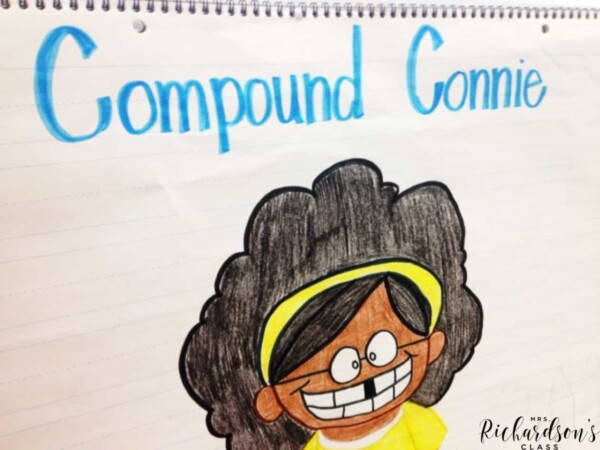 Compound Connie
MRS.
Richardson's
CLASS